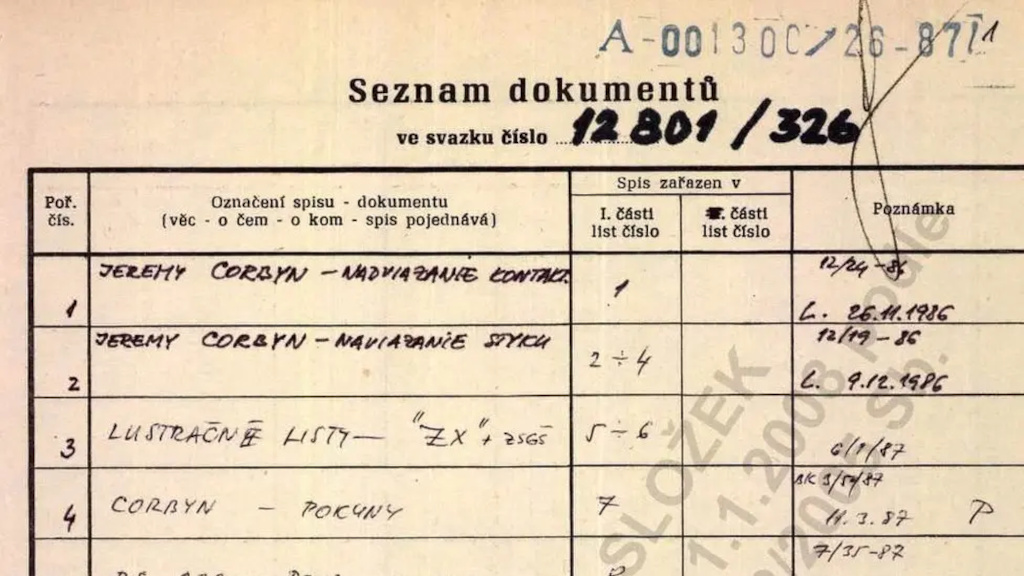 A-001300/26-87 1
Seznam dokumentů
ve svazku číslo 12 801/326
Poř. čís.
Označení spisu - dokumentu
(věc - o čem - o kom - spis pojednává)
Spis zařazen v
I. části list číslo
části list číslo
Poznámka
1 JEREMY CORBYN - NADVIAZANIE KONTAKT. 1 12/24-86
L. 26.11.1986
2 JEREMY CORBYN - NAVIAZANIE STYKU 2÷4 12/19-86
L. 9.12.1986
3 LUSTRAČNÉ LISTY - "ZX" + ZSGŠ 5÷6 6/1/87
4 CORBYN - POKYNY 7 3/54/87
11.3.87 P
7/35-87
SLOŽEK
1.1.2008 podle
Sb.